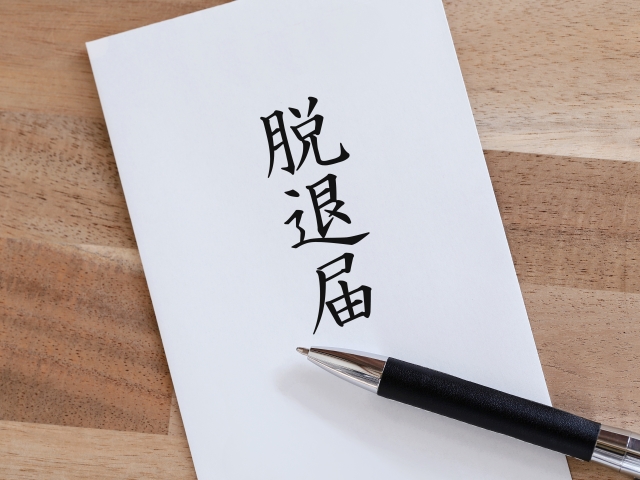 脱退届